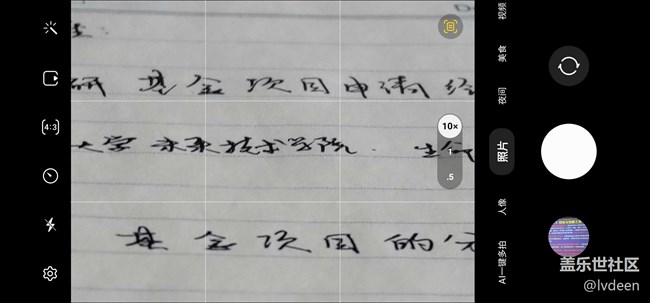 研 基金项目申请经
大学未来技术学院. 生命
基金项目的
4:3
10×
1
.5
视频
美食
夜间
照片
人像
AI一键多拍
盖乐世社区
@lvdeen